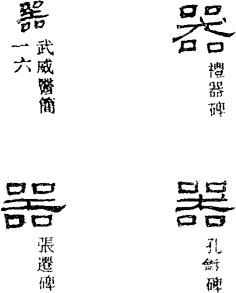 器
禮器碑
器
武威醫簡
一六
器
孔龢碑
器
張遷碑